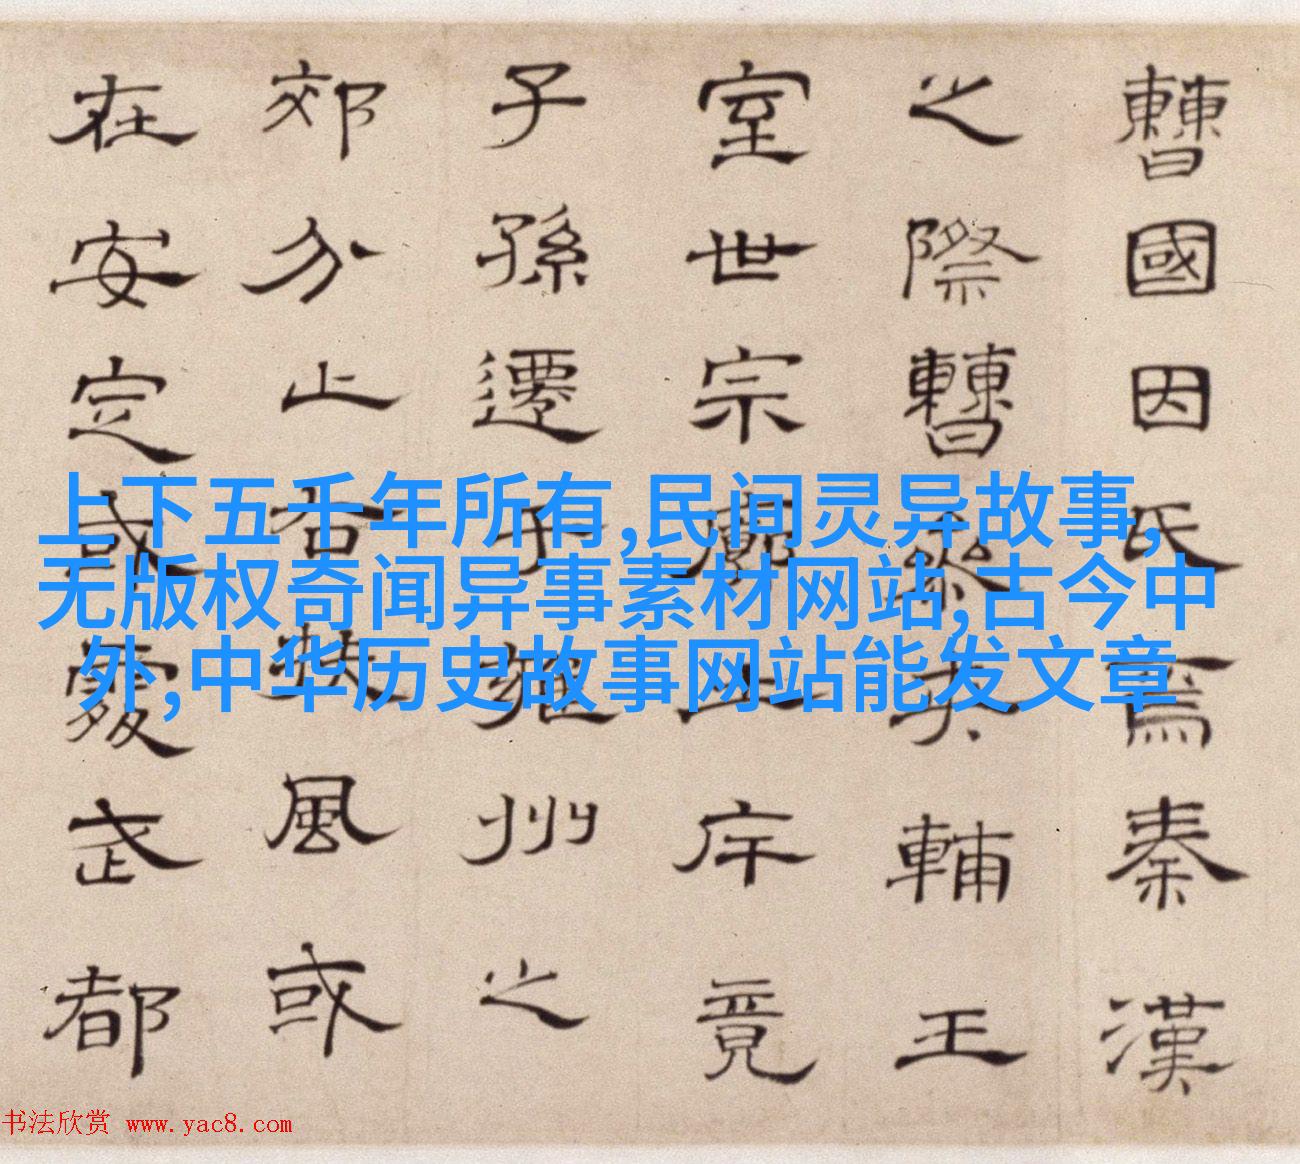 曹國因氏焉秦漢
之際曹參夾輔王
室世宗廓土斥竟
子孫遷于雍州之
郊分止右扶風或
在安定或處武都
上下五千年所有,民间灵异故事,
无版权奇闻异事素材网站,古今中
外,中华历史故事网站能发文章
书法欣赏 www.yac8.com